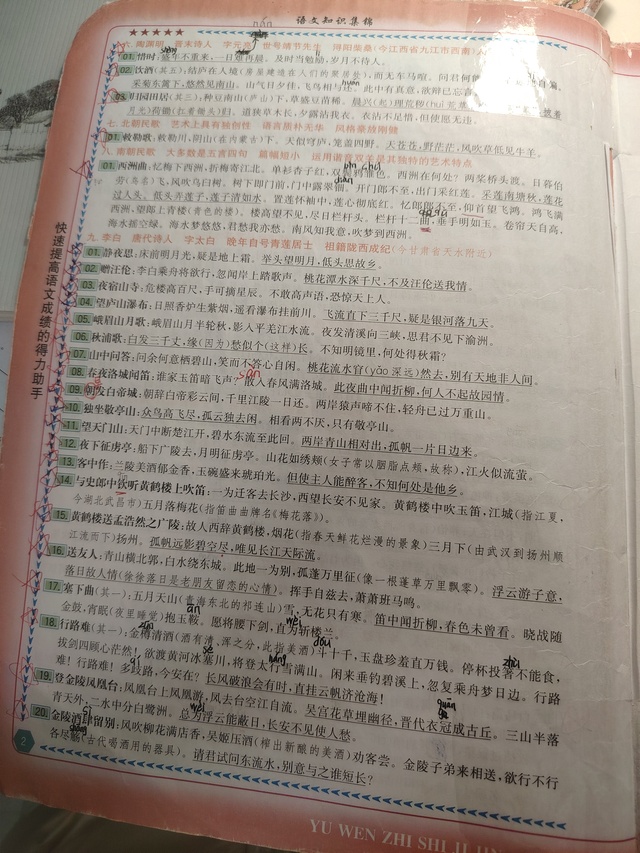 语文知识集锦
六 陶渊明 晋末诗人 字元亮 世号靖节先生 浔阳柴桑(今江西省九江市西南)人
01. 惜时:盛年不重来,一日难再晨。及时当勉励,岁月不待人。
02. 饮酒(其五):结庐在人境(房屋建造在人们的聚居处),而无车马喧。问君何能尔?心远地自偏。
采菊东篱下,悠然见南山。山气日夕佳,飞鸟相与还。此中有真意,欲辩已忘言。
03. 归园田居(其三):种豆南山(庐山)下,草盛豆苗稀。晨兴(起)理荒秽(huì
月光)荷锄(扛着锄头)归。道狭草木长,夕露沾我衣。衣沾不足惜,但使愿无违。
七 北朝民歌 艺术上具有独创性 语言质朴无华 风格豪放刚健
01. 敕勒歌:敕勒川,阴山(在内蒙古)下。天似穹庐,笼盖四野。天苍苍,野茫茫,风吹草低见牛羊。
八 南朝民歌 大多数是五言四句 篇幅短小 运用谐音双关是其独特的艺术特点
01. 西洲曲:忆梅下西洲,折梅寄江北。单衫杏子红,双鬓鸦雏色。西洲在何处?两桨桥头渡。日暮伯
劳(鸟名)飞,风吹乌臼树。树下即门前,门中露翠钿。开门郎不至,出门采红莲。采莲南塘秋,莲花
过人头。低头弄莲子,莲子清如水。置莲怀袖中,莲心彻底红。忆郎郎不至,仰首望飞鸿。鸿飞满
西洲,望郎上青楼(青色的楼)。楼高望不见,尽日栏杆头。栏杆十二曲,垂手明如玉。卷帘天自高,
海水摇空绿。海水梦悠悠,君愁我亦愁。南风知我意,吹梦到西洲。
九 李白 唐代诗人 字太白 晚年自号青莲居士 祖籍陇西成纪(今甘肃省天水附近)
01. 静夜思:床前明月光,疑是地上霜。举头望明月,低头思故乡。
02. 赠汪伦:李白乘舟将欲行,忽闻岸上踏歌声。桃花潭水深千尺,不及汪伦送我情。
03. 夜宿山寺:危楼高百尺,手可摘星辰。不敢高声语,恐惊天上人。
04. 望庐山瀑布:日照香炉生紫烟,遥看瀑布挂前川。飞流直下三千尺,疑是银河落九天。
05. 峨眉山月歌:峨眉山月半轮秋,影入平羌江水流。夜发清溪向三峡,思君不见下渝洲。
06. 秋浦歌:白发三千丈,缘(因为)愁似个(这样)长。不知明镜里,何处得秋霜?
07. 山中问答:问余何意栖碧山,笑而不答心自闲。桃花流水窅(yǎo 深远)然去,别有天地非人间。
08. 春夜洛城闻笛:谁家玉笛暗飞声?散入春风满洛城。此夜曲中闻折柳,何人不起故园情。
09. 朝发白帝城:朝辞白帝彩云间,千里江陵一日还。两岸猿声啼不住,轻舟已过万重山。
10. 独坐敬亭山:众鸟高飞尽,孤云独去闲。相看两不厌,只有敬亭山。
11. 望天门山:天门中断楚江开,碧水东流至此回。两岸青山相对出,孤帆一片日边来。
12. 夜下征虏亭:船下广陵去,月明征虏亭。山花如绣颊(女子常以胭脂点颊,故称),江火似流萤。
13. 客中作:兰陵美酒郁金香,玉碗盛来琥珀光。但使主人能醉客,不知何处是他乡。
14. 与史郎中钦听黄鹤楼上吹笛:一为迁客去长沙,西望长安不见家。黄鹤楼中吹玉笛,江城(指江夏,
今湖北武昌市)五月落梅花(指笛曲曲牌名《梅花落》)。
15. 黄鹤楼送孟浩然之广陵:故人西辞黄鹤楼,烟花(指春天鲜花烂漫的景象)三月下(由武汉到扬州顺
江流而下)扬州。孤帆远影碧空尽,唯见长江天际流。
16. 送友人:青山横北郭,白水绕东城。此地一为别,孤蓬万里征(像一根蓬草万里飘零)。浮云游子意,
落日故人情(徐徐落日是老朋友留恋的心情)。挥手自兹去,萧萧班马鸣。
17. 塞下曲(其一):五月天山(青海东北的祁连山)雪,无花只有寒。笛中闻折柳,春色未曾看。晓战随
金鼓,宵眠(夜里睡觉)抱玉鞍。愿将腰下剑,直为斩楼兰。
18. 行路难(其一):金樽清酒(酒有清、浑之分,此指美酒)斗十千,玉盘珍羞直万钱。停杯投箸不能食,
拔剑四顾心茫然!欲渡黄河冰塞川,将登太行雪满山。闲来垂钓碧溪上,忽复乘舟梦日边。行路
难!行路难!多歧路,今安在?长风破浪会有时,直挂云帆济沧海!
19. 登金陵凤凰台:凤凰台上凤凰游,凤去台空江自流。吴宫花草埋幽径,晋代衣冠成古丘。三山半落
青天外,二水中分白鹭洲。总为浮云能蔽日,长安不见使人愁。
20. 金陵酒肆留别:风吹柳花满店香,吴姬压酒(榨出新酿的美酒)劝客尝。金陵子弟来相送,欲行不行
各尽觞(古代喝酒用的器具)。请君试问东流水,别意与之谁短长?
快速提高语文成绩的得力助手
2
YU WEN ZHI SHI JI JIN